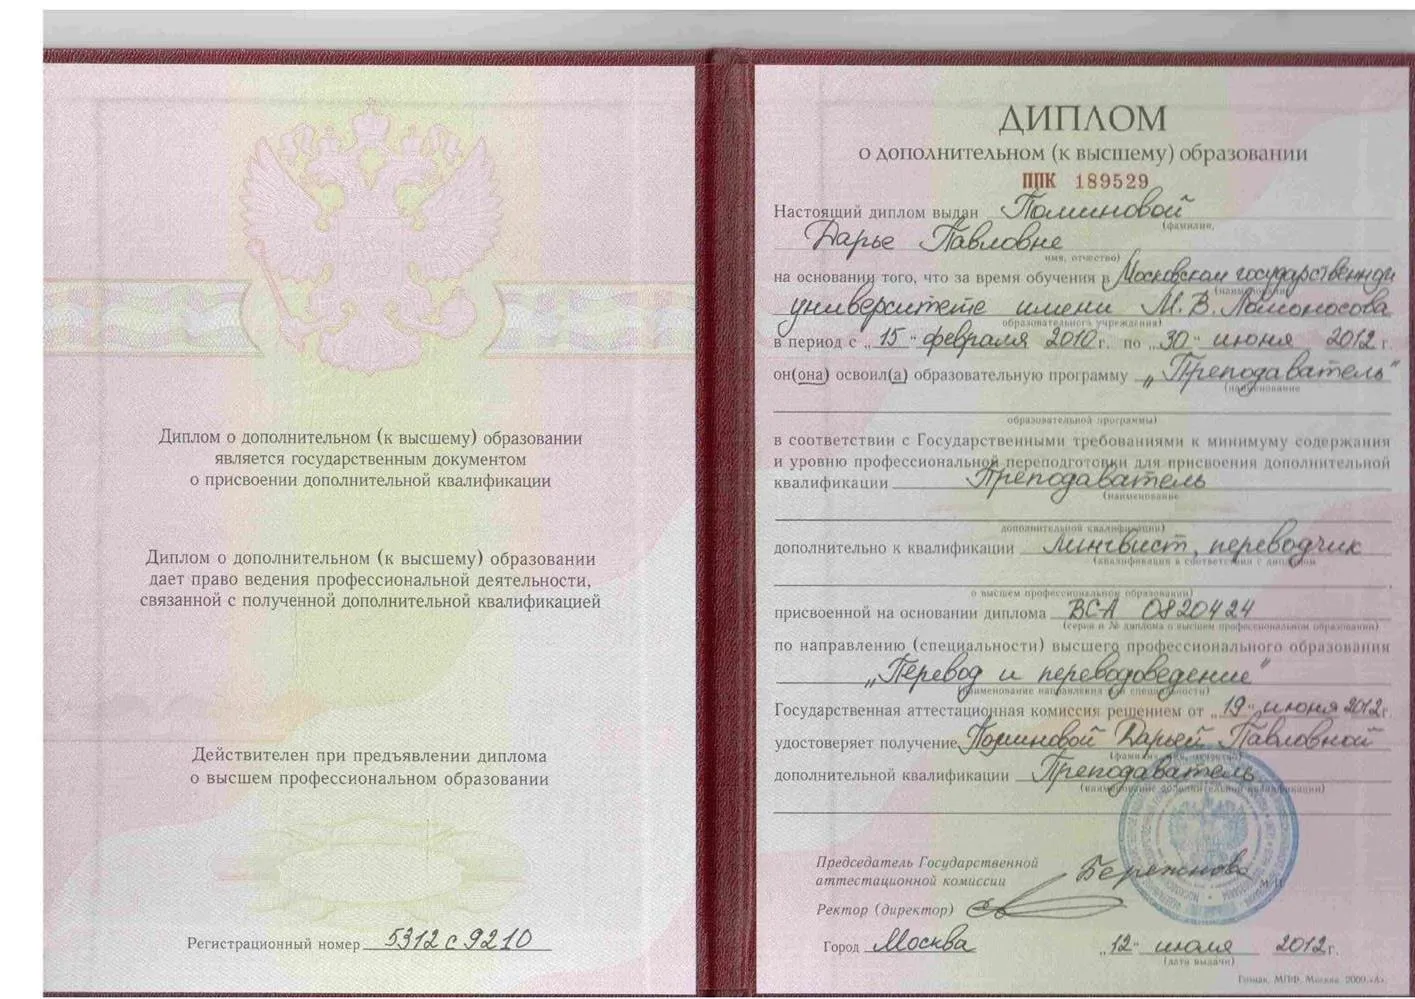 Диплом о дополнительном (к высшему) образовании
является государственным документом
о присвоении дополнительной квалификации
Диплом о дополнительном (к высшему) образовании
дает право ведения профессиональной деятельности,
связанной с полученной дополнительной квалификацией
Действителен при предъявлении диплома
о высшем профессиональном образовании
Регистрационный номер 5312 с 9210
ДИПЛОМ
о дополнительном (к высшему) образовании
ППК 189529
Настоящий диплом выдан Поминовой
(фамилия,
Дарье Павловне
имя, отчество)
на основании того, что за время обучения в Московском государственном
(наименование
университете имени М.В. Ломоносова
образовательного учреждения)
в период с „15“ февраля 2010 г. по „30“ июня 2012 г.
он(она) освоил(а) образовательную программу „Преподаватель“
(наименование
образовательной программы)
в соответствии с Государственными требованиями к минимуму содержания
и уровню профессиональной переподготовки для присвоения дополнительной
квалификации Преподаватель
(наименование
дополнительной квалификации)
дополнительно к квалификации лингвист, переводчик
(квалификация в соответствии с дипломом
о высшем профессиональном образовании)
присвоенной на основании диплома ВСА 0820424
(серия и № диплома о высшем профессиональном образовании)
по направлению (специальности) высшего профессионального образования
„Перевод и переводоведение“
(наименование направления или специальности)
Государственная аттестационная комиссия решением от „19“ июня 2012г.
удостоверяет получение Поминовой Дарьей Павловной
(фамилия, имя, отчество)
дополнительной квалификации Преподаватель
(наименование дополнительной квалификации)
Председатель Государственной
аттестационной комиссии
М.П.
Ректор (директор)
Город Москва „12“ июля 2012г.
(дата выдачи)
Гознак, МПФ, Москва, 2009, «А».